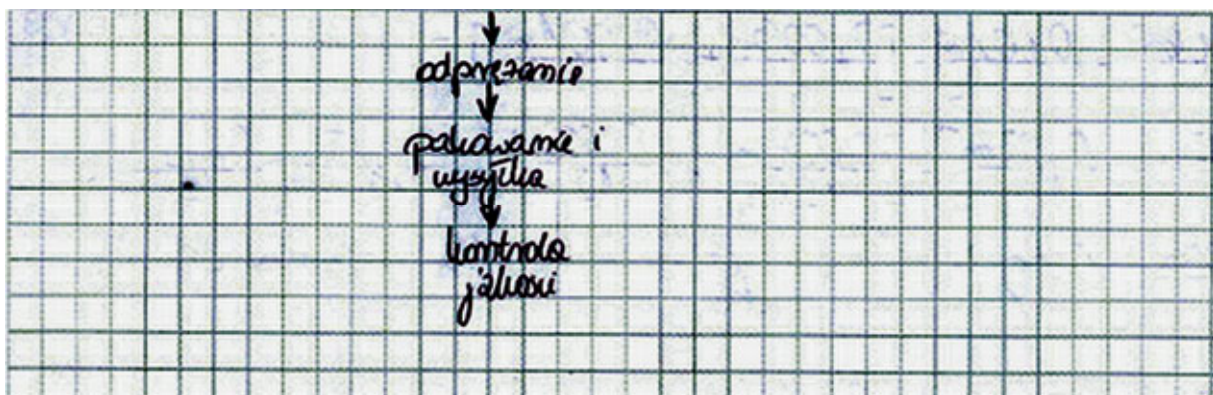 odprężanie
pakowanie i
wysyłka
kontrola
jakości